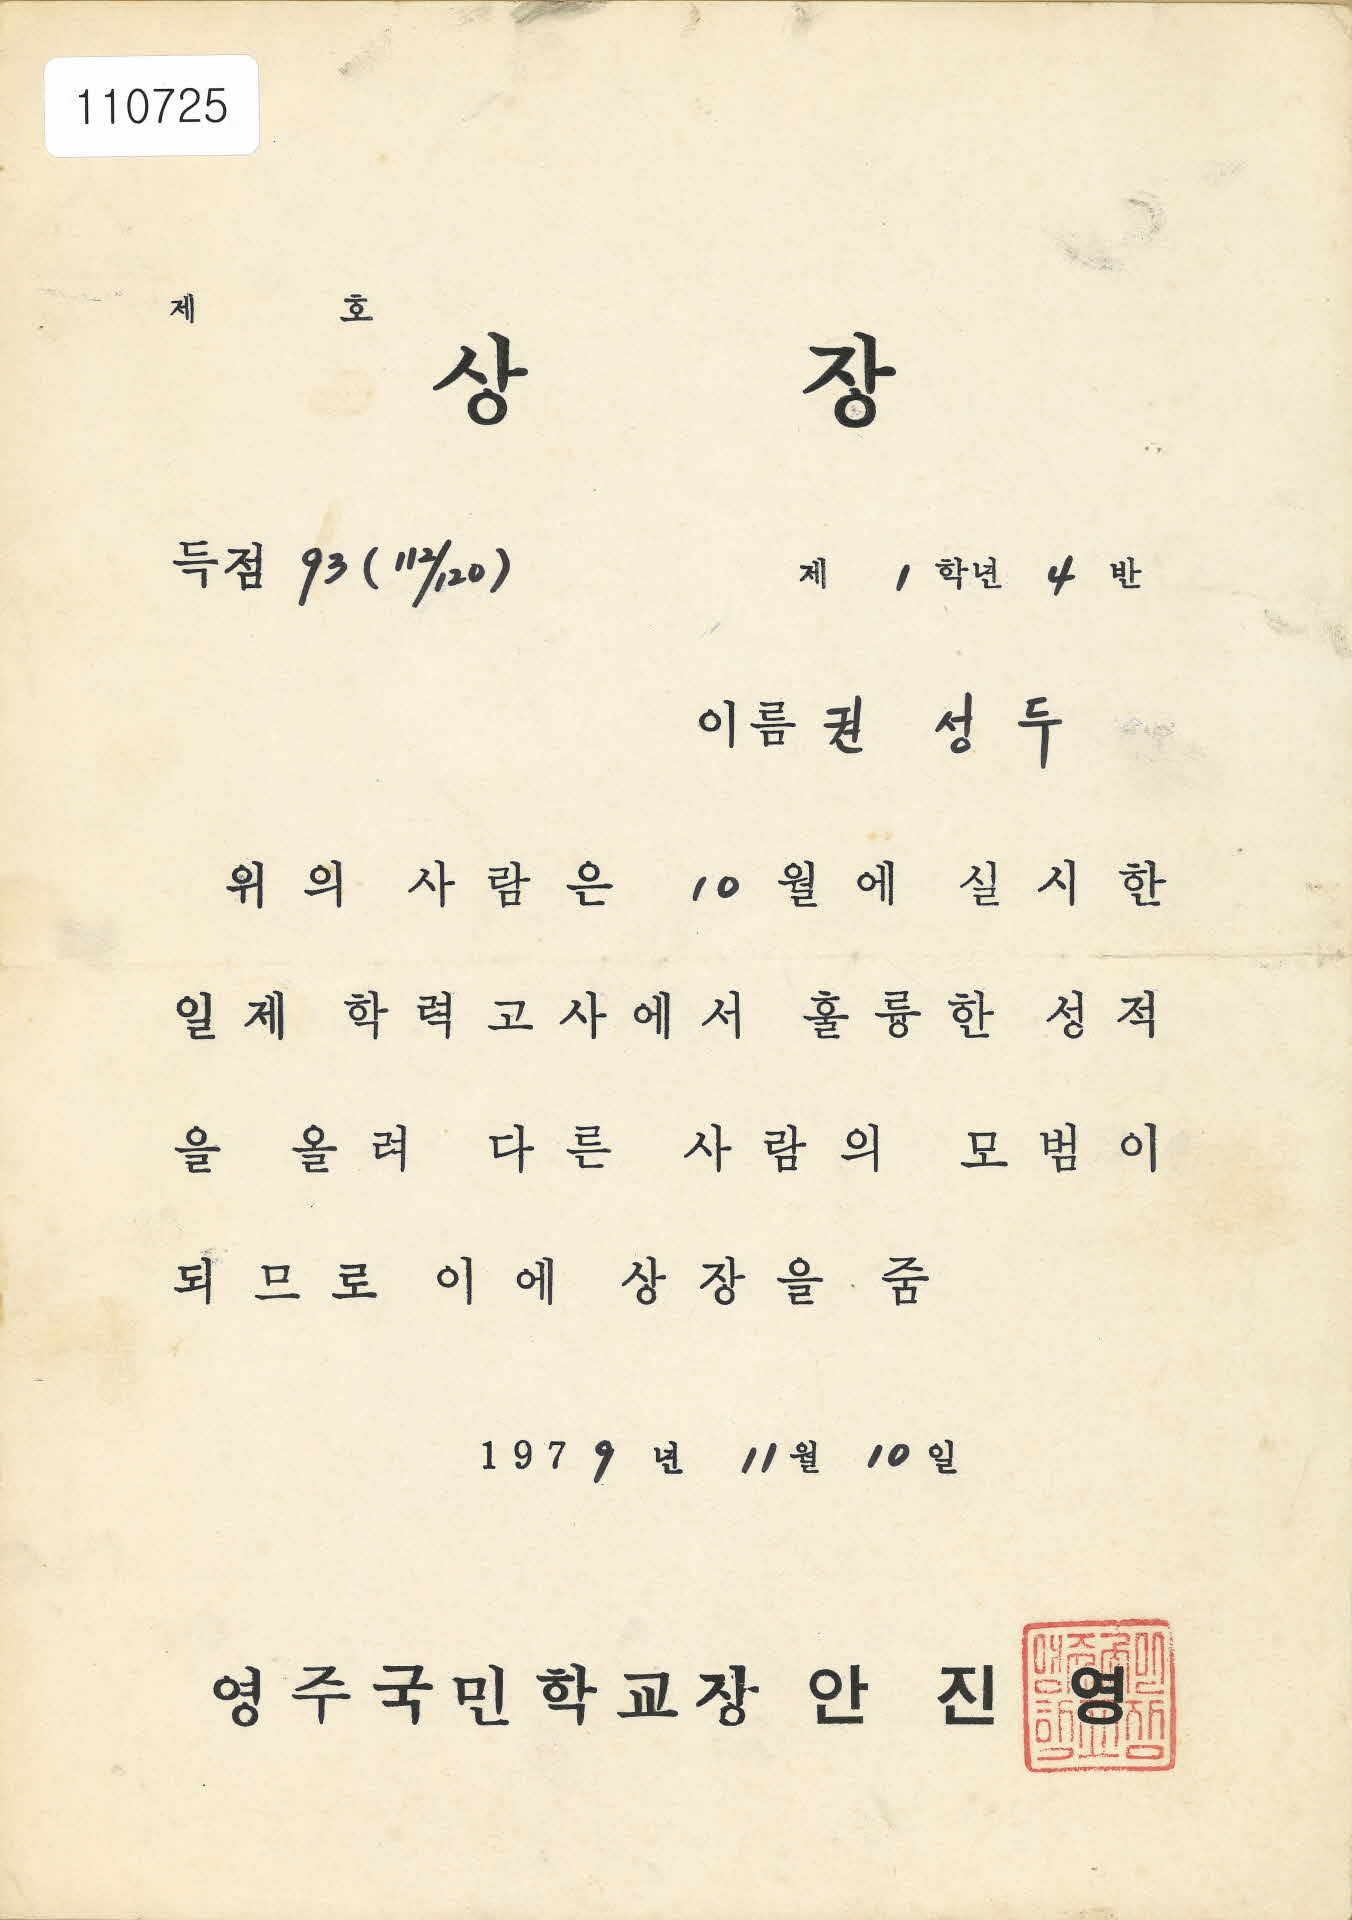 110725
제 호
상 장
득점 93 (112/120) 제 1 학년 4 반
이름 권 성 두
위의 사람은 10월에 실시한
일제 학력고사에서 훌륭한 성적
을 올려 다른 사람의 모범이
되므로 이에 상장을 줌
1979년 11월 10일
영주국민학교장 안 진 영
영주국민학교장